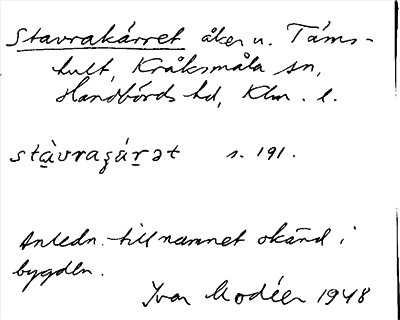 Stavrakärret åker u. Täms-
hult, Kråksmåla sn,
Handbörds hd, Klm. l.
s. 191.
Anledn. till namnet okänd i
bygden.
Ivar Modéer 1948